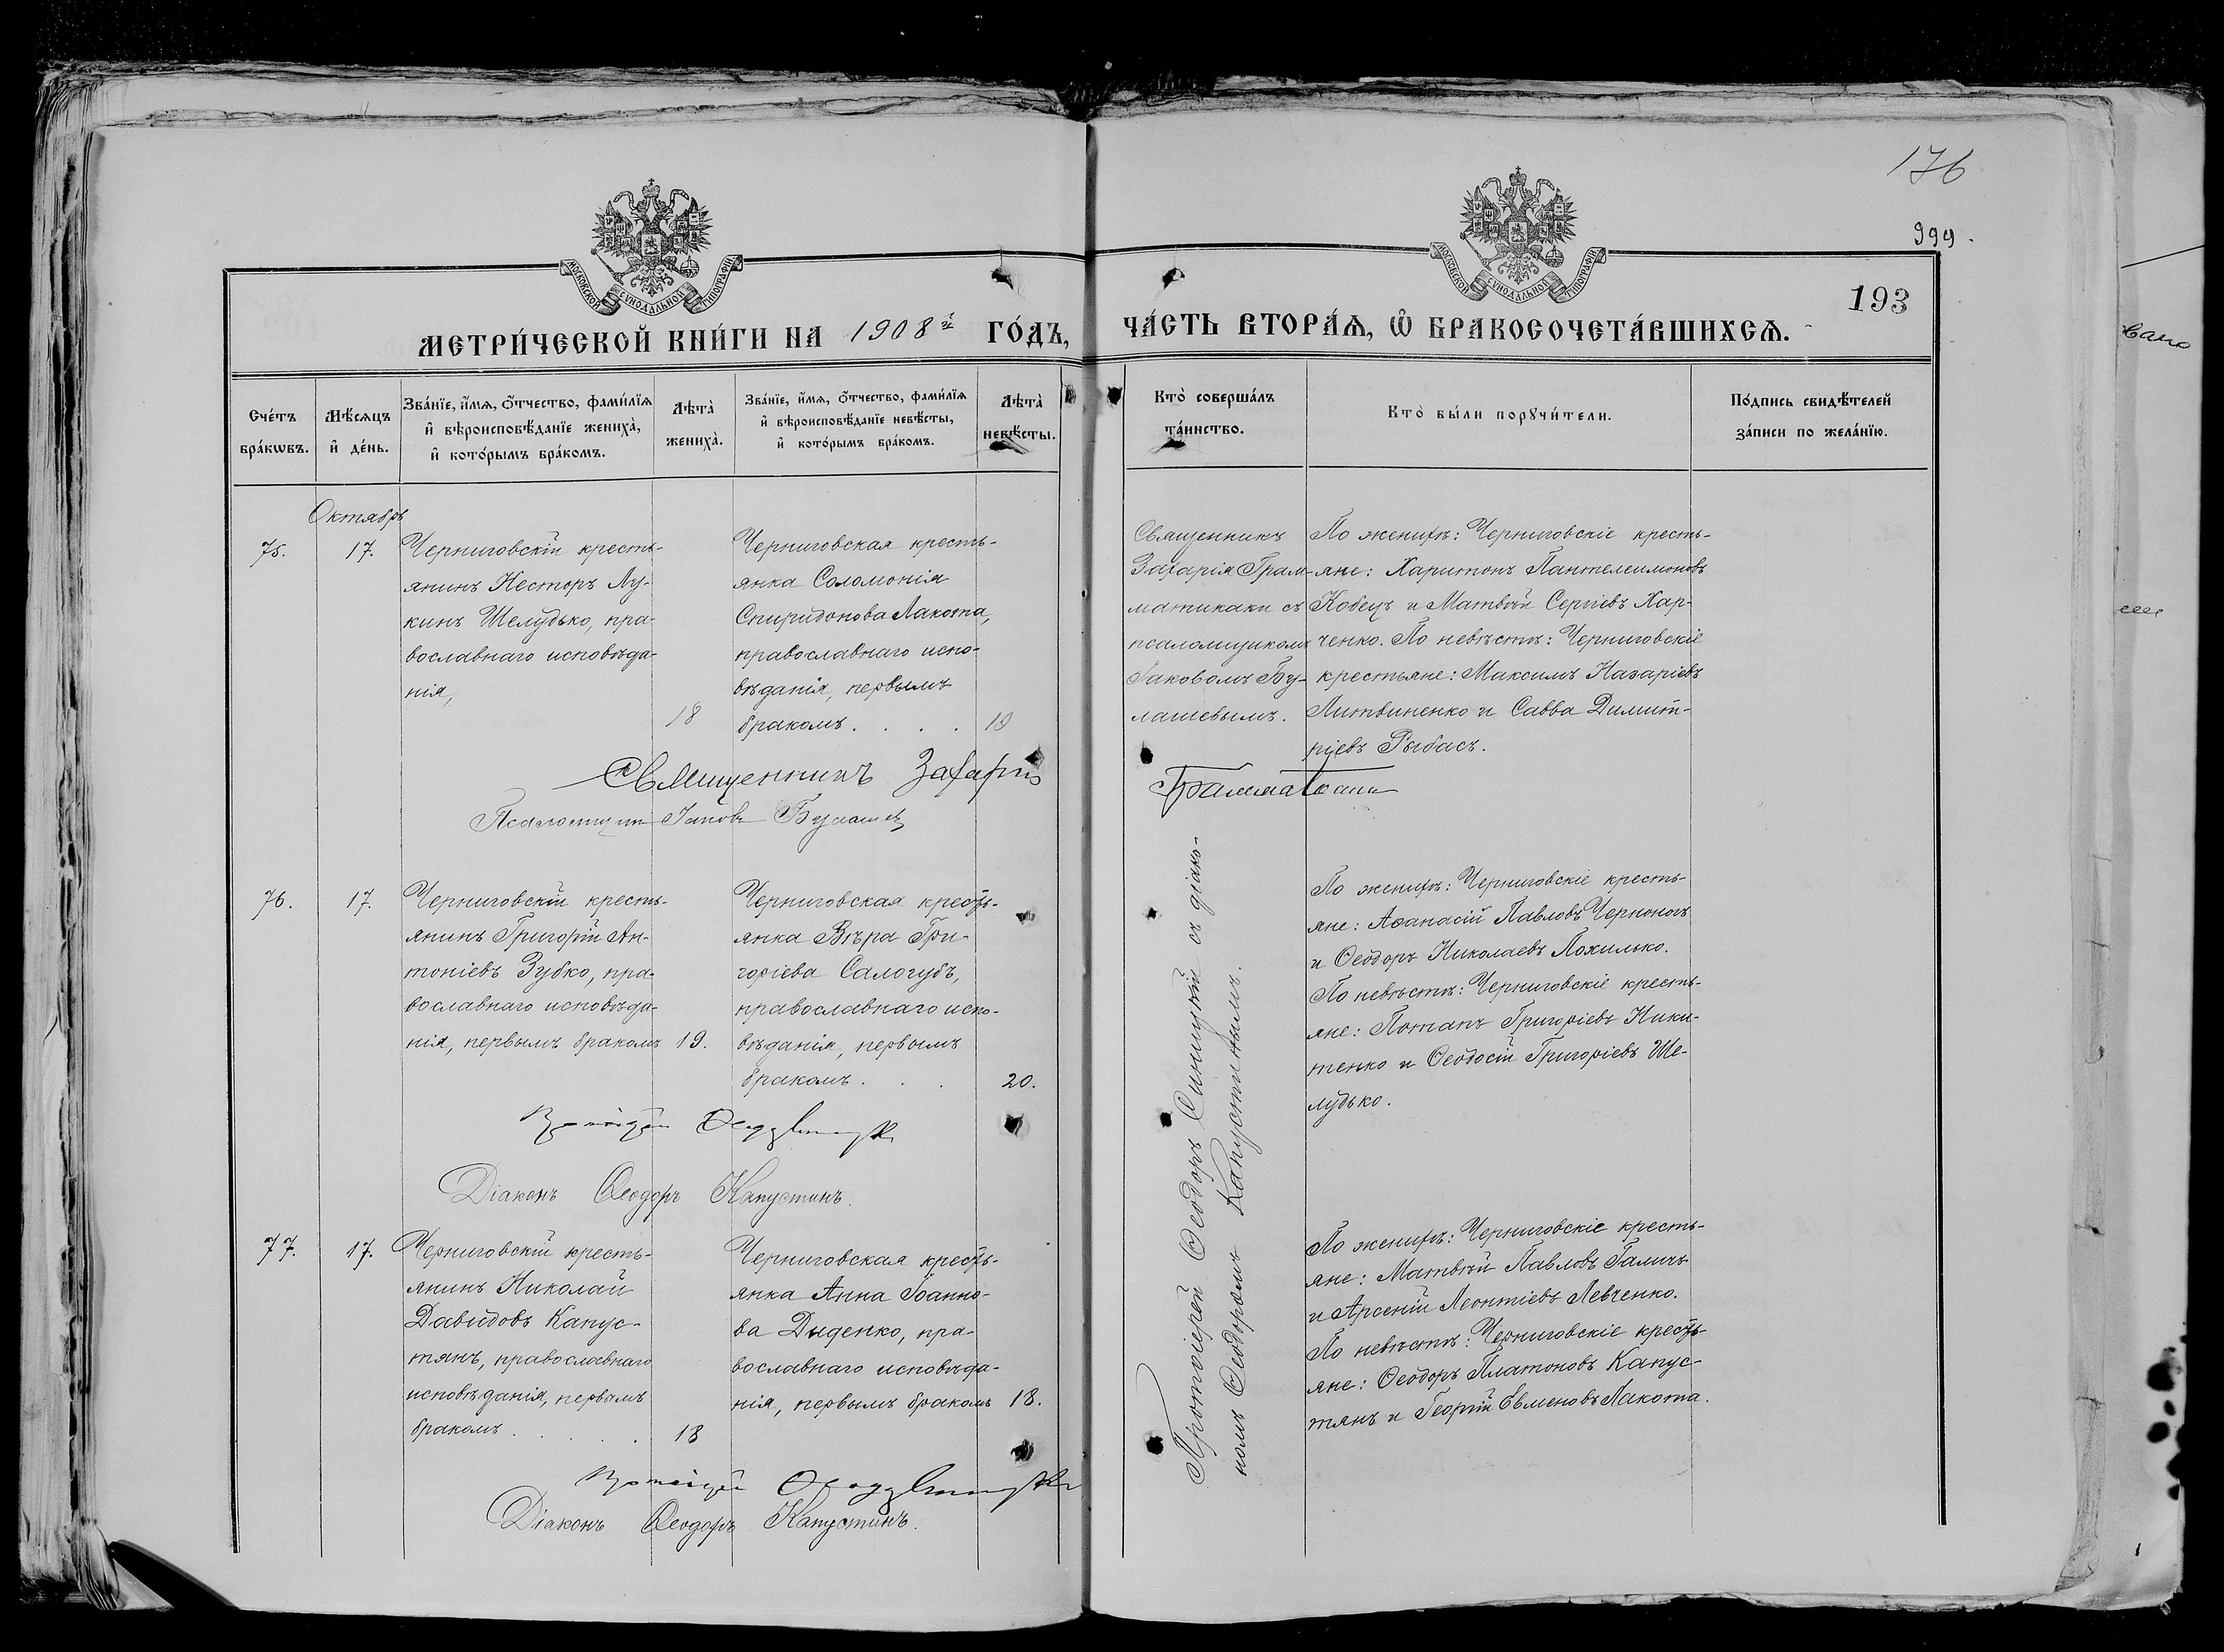 176
994.
193
МОСКОВСКОЙ СѴНОДАЛЬНОЙ ТИПОГРАФІИ
МОСКОВСКОЙ СѴНОДАЛЬНОЙ ТИПОГРАФІИ
МЕТРИ́ЧЕСКОЙ КНИ́ГИ НА 1908й ГО́ДЪ,
ЧА́СТЬ ВТОРА́Ѧ, Ѽ БРАКОСОЧЕТА́ВШИХСѦ.
Сче́тъ
бра́кѡвъ.
Мѣ́сяцъ
и҆ де́нь.
Зва́нїе, и҆́мѧ, ѻ҆́тчество, фами́лїѧ
и҆ вѣроисповѣ́данїе жениха̀,
и҆ кото́рымъ бра́комъ.
Лѣта̀
жениха̀.
Зва́нїе, и҆́мѧ, ѻ҆́тчество, фами́лїѧ
и҆ вѣроисповѣ́данїе невѣ́сты,
и҆ кото́рымъ бра́комъ.
Лѣта̀
невѣ́сты.
Кто̀ соверша́лъ
та́инство.
Кто̀ бы́ли порꙋчи́тели.
По́дпись свидѣ́телей
за́писи по жела́нїю.
Октябрь
75.
17.
Черниговскій кресть-
янинъ Несторъ Лу-
кинъ Шелудько, пра-
вославнаго исповѣда-
нія,
18
Черниговская кресть-
янка Соломонія
Спиридонова Лакота,
православнаго испо-
вѣданія, первымъ
бракомъ . . . .
19
Священникъ
Захарія Грам-
матикаки съ
псаломщикомъ
Іаковомъ Бу-
лашевымъ.
По женихѣ: Черниговскіе кресть-
яне: Харитонъ Пантелеимоновъ
Кобецъ и Матвѣй Сергіевъ Хар-
ченко. По невѣстѣ: Черниговскіе
крестьяне: Максимъ Назаріевъ
Литвиненко и Савва Димит-
ріевъ Рыбасъ.
Священникъ Захарія
Грамматикаки
Псаломщикъ Іаковъ Булашев
76.
17.
Черниговскій кресть-
янинъ Григорій Ан-
тоніевъ Зубко, пра-
вославнаго исповѣда-
нія, первымъ бракомъ
19.
Черниговская кресть-
янка Вѣра Гри-
горіева Салогубъ,
православнаго испо-
вѣданія, первымъ
бракомъ . . .
20.
Протоіерей Ѳеодоръ Синицкій съ діако-
номъ Ѳеодоромъ Капустинымъ.
По женихѣ: Черниговскіе кресть-
яне: Аѳанасій Павловъ Черноногъ
и Ѳеодоръ Николаевъ Похилько.
По невѣстѣ: Черниговскіе кресть-
яне: Потапъ Григоріевъ Ники-
тенко и Ѳеодосій Григоріевъ Ше-
лудько.
Протоіерей Ѳеодоръ Синицкій
Діаконъ Ѳеодоръ Капустинъ.
77.
17.
Черниговскій кресть-
янинъ Николай
Давидовъ Капус-
тянъ, православнаго
исповѣданія, первымъ
бракомъ . . . . .
18
Черниговская кресть-
янка Анна Іоанно-
ва Дыденко, пра-
вославнаго исповѣда-
нія, первымъ бракомъ
18.
По женихѣ: Черниговскіе кресть-
яне: Матвѣй Павловъ Галичъ
и Арсеній Леонтіевъ Левченко.
По невѣстѣ: Черниговскіе кресть-
яне: Ѳеодоръ Платоновъ Капус-
тянъ и Георгій Евменовъ Лакота.
Протоіерей Ѳеодоръ Синицкій
Діаконъ Ѳеодоръ Капустинъ.